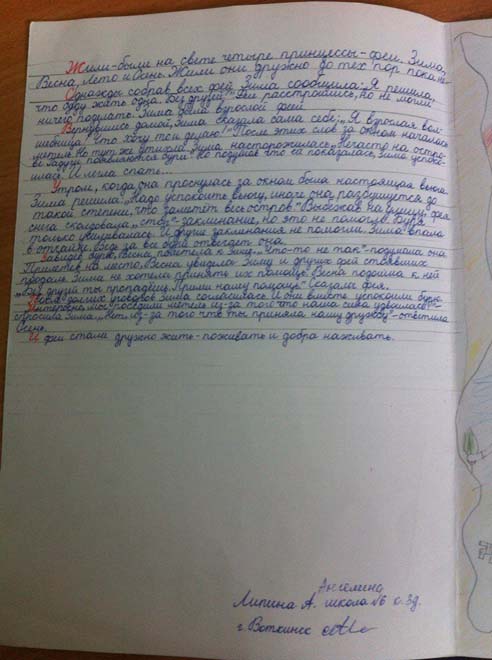 Жили-были на свете четыре принцессы-феи. Зима,
Весна, Лето и Осень. Жили они дружно до тех пор пока не
Однажды собрав всех фей, Зима сообщила: „Я решила,
что буду жить одна. Без друзей." Феи расстроились, но не могли
ничего поделать. Зима была взрослой феей.
Вернувшись домой, Зима сказала сама себе: „Я взрослая вол-
шебница что хочу то и делаю!" После этих слов за окном началась
метель. Но тут же утихла. Зима насторожилась „Нечасто на остро-
ве Радуги появляются бури". Но подумав что ей показалась, Зима успоко-
илась. И легла спать...
Утром, когда она проснулась за окном была настоящая вьюга
Зима решила: „Надо успокоить вьюгу, иначе она разбушуется до
такой степени, что заметёт весь остров". Выбежав на улицу, фея
снега сколдовала „стоп"- заклинание, но это не помогло. Буря
только увеличивалась. И другие заклинания не помогли. Зима впала
в отчаяние. Ведь за всё беды отвечает она.
Завидев бурю, Весна, полетела к Зиме. „Что-то не так"- подумала она
Прилетев на место, Весна увидела Зиму и других фей стоявших
Зима не хотела принять их помощь. Весна подошла к ней
„Без друзей ты пропадёшь. Прими нашу помощь" Сказала фея.
После долгих уговоров Зима согласилась. И они вместе успокоили бурю
Интересно, мы успокоили метель из-за того что наша сила удвоилась"-
спросила Зима. „Нет, из-за того что ты приняла нашу дружбу"- ответила
Осень.
И феи стали дружно жить-поживать и добра наживать.
Ангелина
Липина А. школа №6 кл. 3д.
г. Воткинск